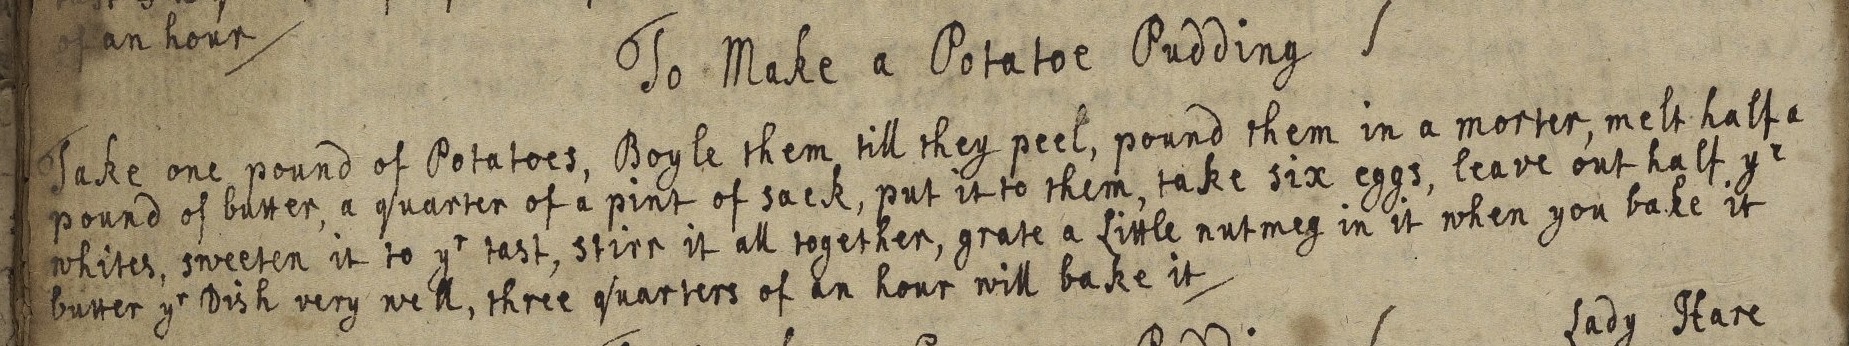 of an hour
To Make a Potatoe Pudding
Take one pound of Potatoes, Boyle them till they peel, pound them in a morter, melt half a
pound of butter, a quarter of a pint of sack, put it to them, take six eggs, leave out half yr
whites, sweeten it to yr tast, stirr it all together, grate a Little nutmeg in it when you bake it
butter yr Dish very well, three quarters of an hour will bake it
Lady Hare